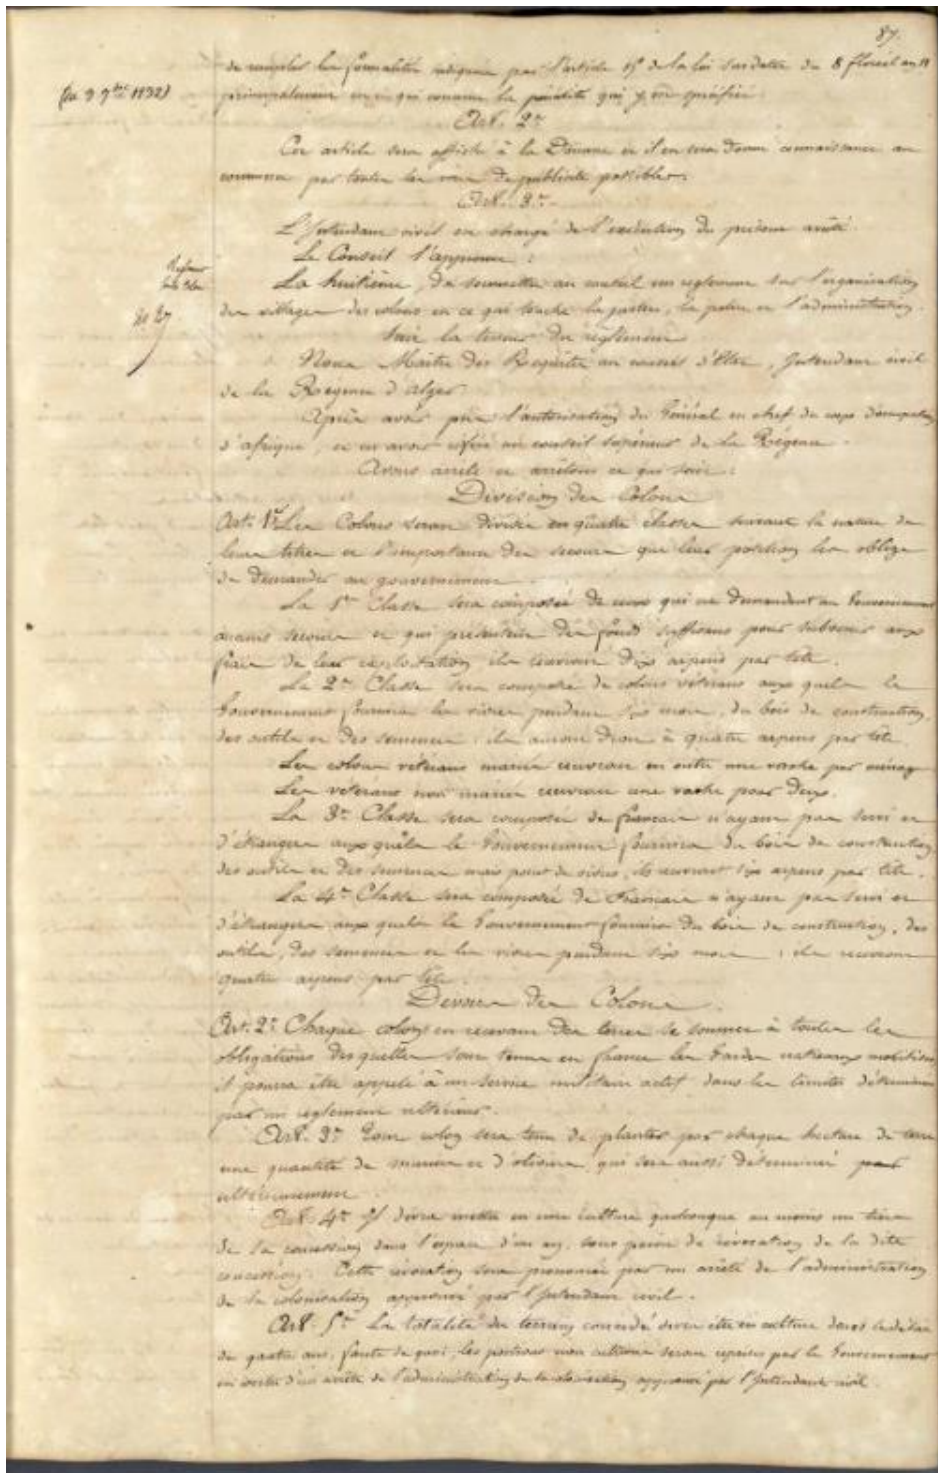 87.
de remplir les formalités indiquées par l'article 15 de la loi sus datée du 8 floréal an 11
principalement en ce qui concerne la pénalité qui y est spécifiée
(du 9 9bre 1832)
Art. 2e
Cet article sera affiché à la Douane et il en sera donné connaissance au
commerce par toutes les voies de publicité possibles.
Art. 3e
L'Intendant civil est chargé de l'exécution du présent arrêté.
Le Conseil l'approuve :
La huitième, de soumettre au conseil un réglement sur l'organisation
des villages des colons en ce qui touche la police et l'administration.
Suit la teneur du réglement
Nous Maître des Requêtes au conseil d'Etat, Intendant civil
de la Régence d'Alger
Après avoir pris l'autorisation du Général en chef du corps d'occupation
d'afrique, et en avoir référé au conseil supérieur de la Régence.
Avons arrêté et arrêtons ce qui suit :
Division des Colons
Art. 1er Les Colons seront divisés en quatre classes suivant la nature de
leurs titres et l'importance des secours que leur position les oblige
de demander au gouvernement.
La 1re Classe sera composée de ceux qui ne demandent au Gouvernement
aucuns secours et qui présentent des fonds suffisans pour subvenir aux
frais de leur exploitation, ils recevront dix arpens par tête.
La 2e Classe sera composée de colons vétérans aux quels le
Gouvernement fournira les vivres pendant six mois, du bois de construction,
des outils et des semences : ils auront droit à quatre arpens par tête.
Les colons vétérans mariés recevront en outre une vache par ménage
Les vétérans non mariés recevront une vache pour deux.
La 3e Classe sera composée de français n'ayant pas servi et
d'étrangers aux quels le Gouvernement fournira du bois de construction,
des outils et des semences mais point de vivres, ils recevront six arpens par tête.
La 4e Classe sera composée de Français n'ayant pas servi et
d'étrangers aux quels le Gouvernement fournira du bois de construction, des
outils, des semences et les vivres pendant six mois : ils recevront
quatre arpens par tête.
Devoirs des Colons.
Art. 2e Chaque colon en recevant des terres se soumet à toutes les
obligations des quelles sont tenus en france les Gardes nationaux mobilisés
il pourra être appelé à un service militaire actif dans les limites déterminées
par un réglement ultérieur.
Art. 3e Tout colon sera tenu de planter par chaque hectare de terre
une quantité de muriers et d'oliviers qui sera aussi déterminée
ultérieurement.
Art. 4e Il devra mettre en une culture quelconque au moins un tiers
de la concession dans l'espace d'un an, sous peine de révocation de la dite
concession. Cette révocation sera prononcée par un arrêté de l'administration
de la colonisation approuvé par l'Intendant civil.
Art. 5e La totalité du terrain concédé devra être en culture dans le délai
de quatre ans, faute de quoi, les portions non cultivées seront reprises par le Gouvernement
en vertu d'un arrêté de l'administration de la colonisation approuvé par l'Intendant civil.